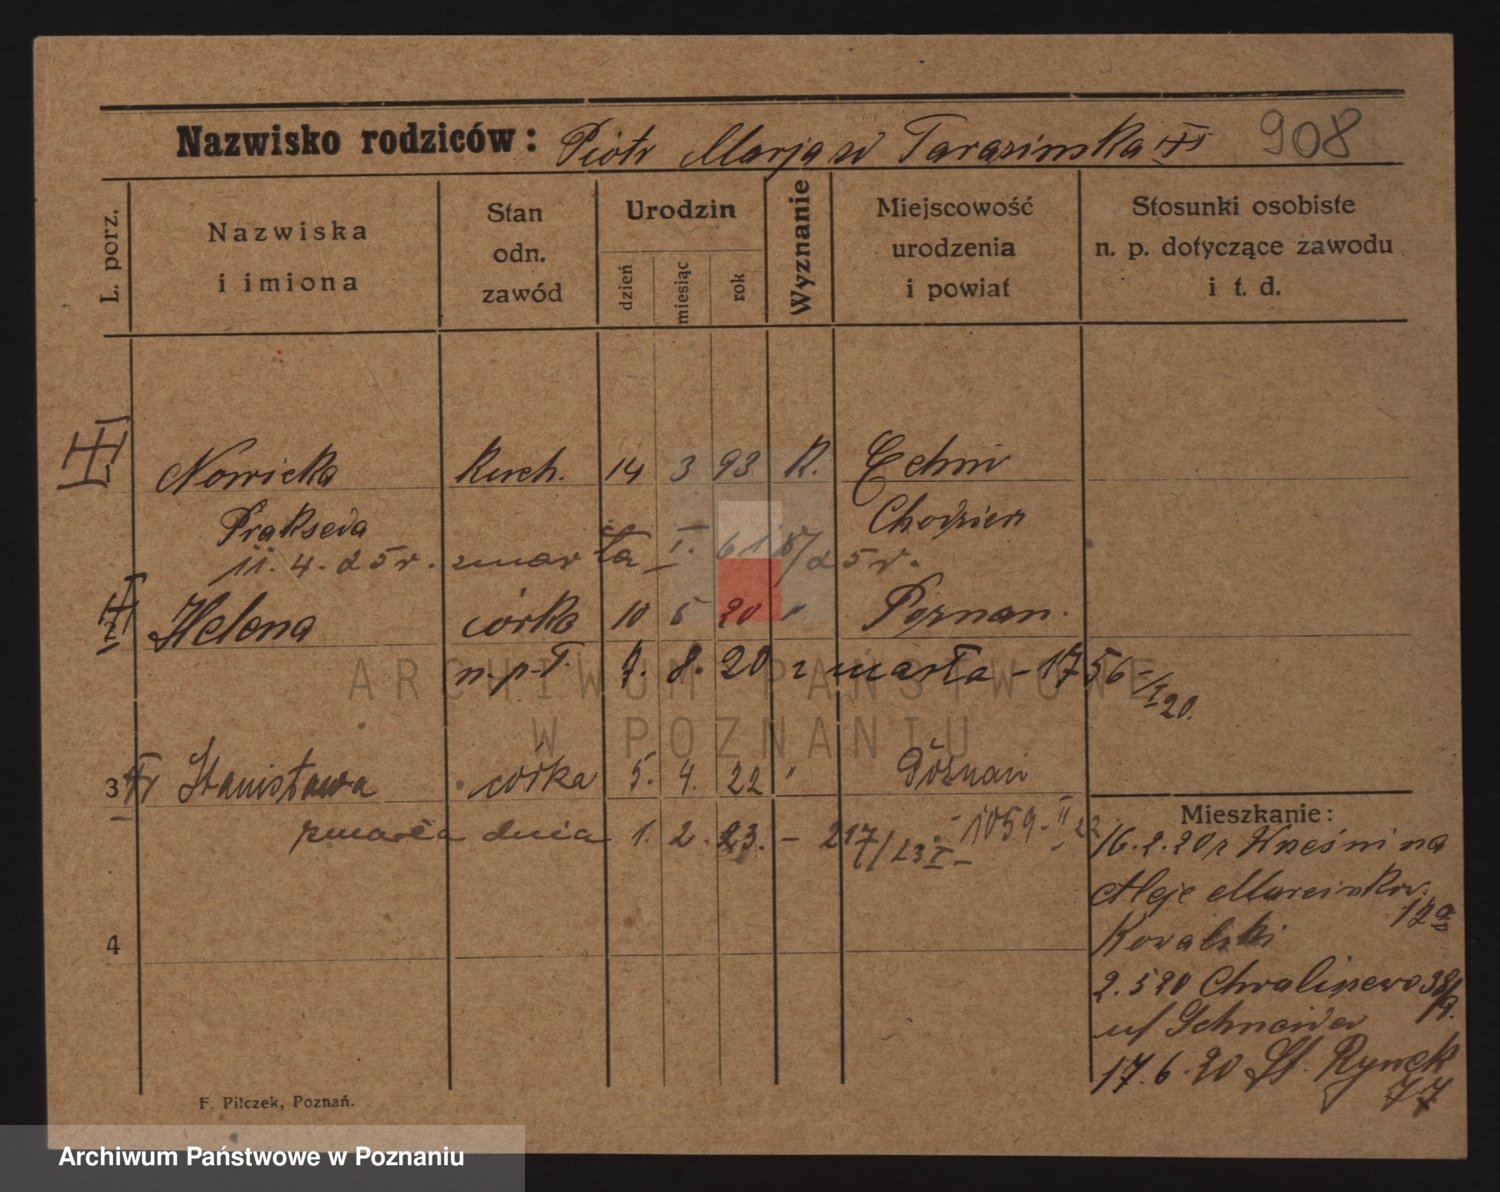 Nazwisko rodziców: Piotr Marja w Tarasinska 908
L. porz.
Nazwiska
i imiona
Stan
odn.
zawód
Urodzin
dzień
miesiąc
rok
Wyznanie
Miejscowość
urodzenia
i powiat
Stosunki osobiste
n. p. dotyczące zawodu
i t. d.
Nowicka kuch. 14 3 93 R.
Prakseda Chodzież
11. 4. 25 r. zmarła I. 618/25 r.
2 Helena córka 10 5 20 " Poznan.
n. p. T. 9. 8. 20 zmarła - 1756 - I/20.
3 Stanisława córka 5. 4. 22 " Poznań
zmarła dnia 1. 2. 23. - 217/23 I - 1059 - II 22
4
Mieszkanie:
16. 2. 20 z Wrześni na
Aleje Marcinkow.
12a
Kowalski
2. 5 20 Chwaliszewo 38/9.
u/ Schneider
17. 6. 20 St. Rynek
77
F. Pilczek, Poznań.
ARCHIWUM PAŃSTWOWE
W POZNANIU
Archiwum Państwowe w Poznaniu